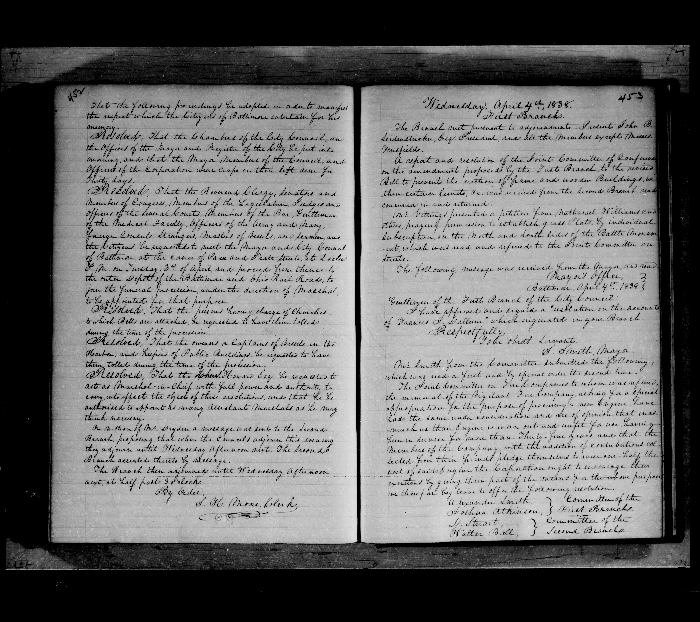 452
That the following proceedings be adopted in order to manifest
the respect which the Citizens of Baltimore entertain for his
memory.
Resolved, That the Chambers of the City Council, and
the Offices of the Mayor and Register of the City be put into
mourning, and that the Mayor, Members of the Council, and
Officers of the Corporation wear crape on the left arm for
thirty days.
Resolved, That the Reverend Clergy, Senators and
Members of Congress, Members of the Legislature, Judges and
Officers of the several Courts, Members of the Bar, Gentlemen
of the Medical Faculty, Officers of the Army and Navy,
Foreign Consuls, Strangers, Masters of Vessels, and Seamen, and
the Citizens be requested to meet the Mayor and City Council
of Baltimore at the corner of and Streets, at 2 o'clock
P. M. on Tuesday, 3rd of April and proceed from thence to
the outer Depot of the Baltimore and Ohio Rail Road, to
join the Funeral procession under the direction of Marshals,
to be appointed for that purpose.
Resolved, That the persons having charge of Churches
to which Bells are attached, be requested to have them tolled
during the time of the procession.
Resolved, That the owners or Captains of Vessels in the
Harbour, and Keepers of Public Buildings, be requested to have
them tolled during the time of the procession.
Resolved, That Howard Esq. be requested to
act as Marshal-in-Chief with full power and authority to
carry into effect the object of these resolutions, and that he be
authorised to appoint as many assistant Marshals as he may
think necessary.
On motion of Mr. Dryden a message was sent to the Second
Branch, proposing that when the Councils adjourn this evening
they adjourn until Wednesday Afternoon next. The Second
Branch acceded thereto by message.
The Branch then adjourned until Wednesday Afternoon
next, at half past 3 o'clock.
By Order,
S. H. Moore, Clerk,
453
Wednesday, April 4th, 1838.
First Branch.
The Branch met pursuant to adjournment. Present John B.
Seidenstricker, Esq. President, and all the Members except Messrs.
A report and resolution of the Joint Committee of Conference
on the amendment proposed by the First Branch to the
Bill to prevent the erection of Frame and wooden Buildings, within
certain limits, &c. was received from the Second Branch, read
concurred in and returned.
Mr. Gittings presented a petition from Nathaniel Williams and
others, praying permission to establish grass Plats, by individual
subscription, on the North and South sides of the Battle Monu-
ment which was read and referred to the Joint Committee on
Streets.
The following message was received from the Mayor and read
Mayor's Office,
Baltimore, April 4th, 1838
Gentlemen of the First Branch of the City Council,
I have approved and signed a "resolution on the account
of Frances F. " which originated in your Branch
Respectfully,
Your Obdt. Servant,
S. Smith, Mayor
Mr. Smith from the Committee submitted the following
which was read a first and by special order the second time.
The Joint Committee on Fire Companies to whom was referred
the memorial of the Vigilant Fire Company, asking for a special
appropriation for the purpose of procuring a new Engine have
had the same under consideration and are of opinion that
much as their Engine is worn out and unfit for use having
been in service for more than Thirty five years and that the
Members of the Company, with the addition of contributions
from them will pledge themselves to one half the
cost of said Engine the Corporation ought to encourage their
exertions by giving them part of the means for the whole purpose
we therefore beg leave to offer the following resolution.
Alexander Smith } Committee of the
Joshua Atkinson, } First Branch.
Stuart } Committee of the
Walter Ball, } Second Branch.